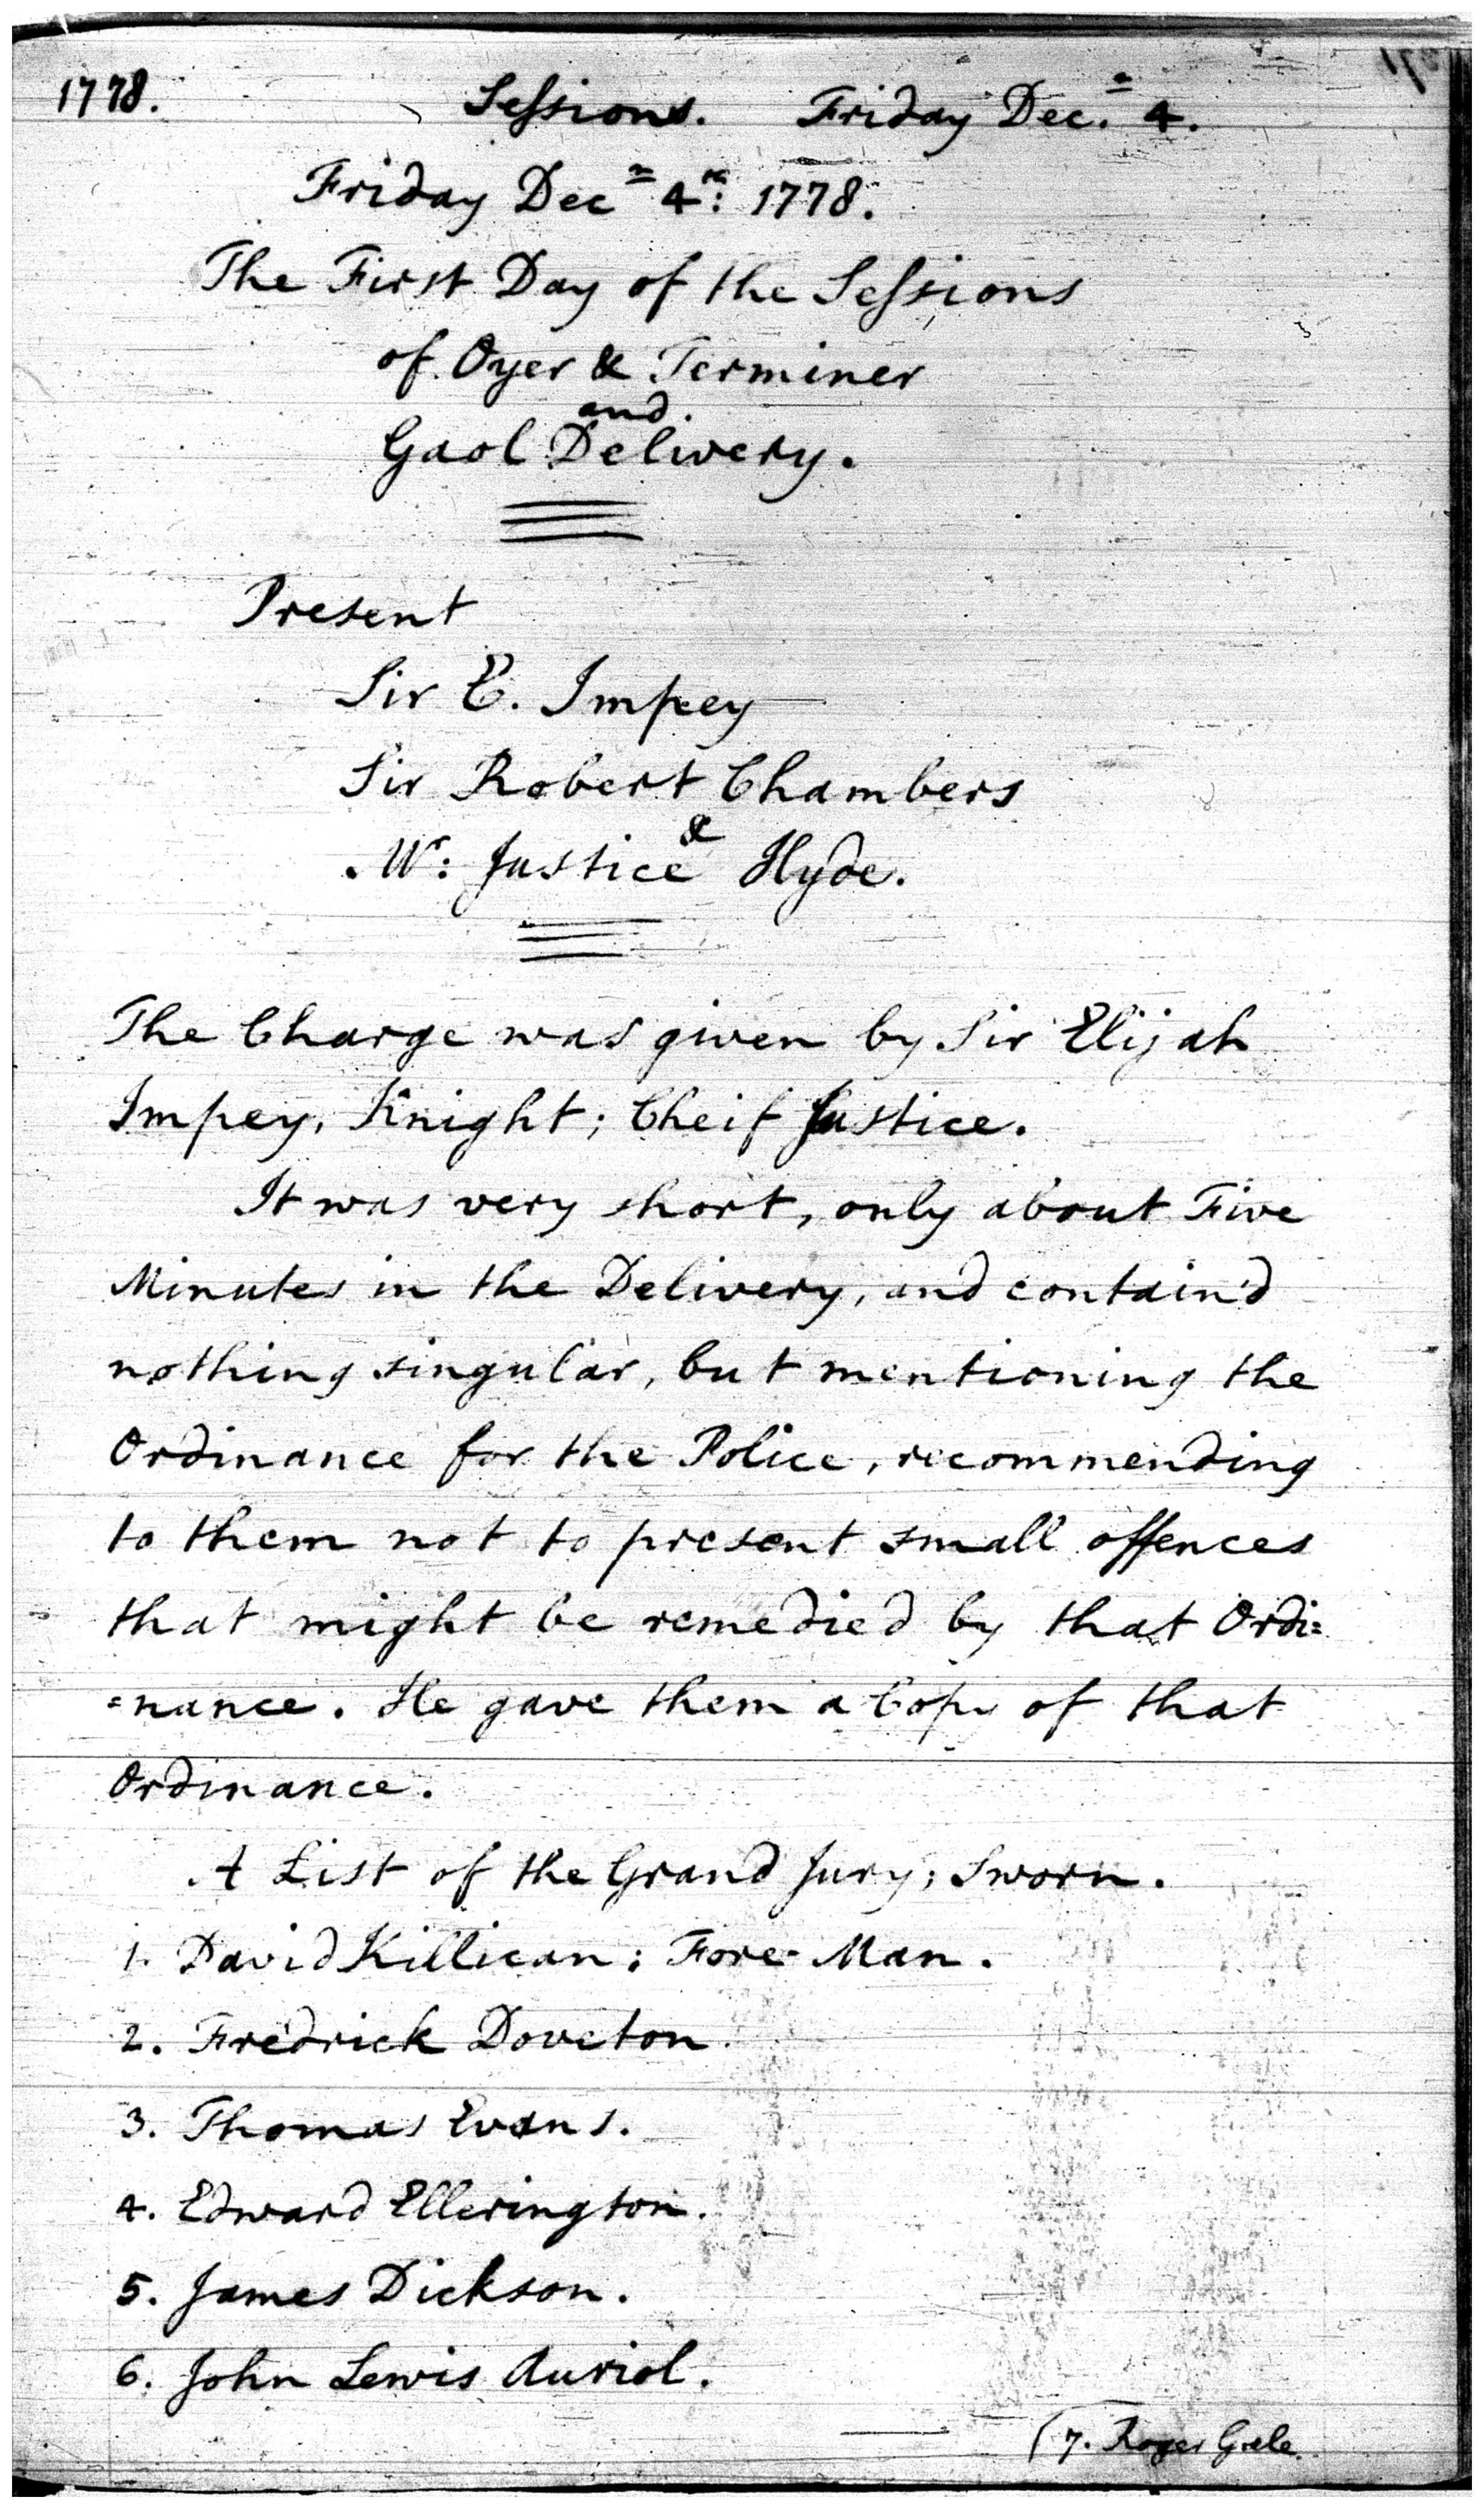 1778. Sessions. Friday Dec.r 4.
Friday Decr 4th: 1778.
The First Day of the Sessions
of Oyer & Terminer
and
Gaol Delivery.
Present
Sir E. Impey
Sir Robert Chambers
&
Mr: Justice Hyde.
The Charge was given by Sir Elijah
Impey, Knight; Cheif Justice.
It was very short, only about Five
Minutes in the Delivery, and contain'd
nothing singular, but mentioning the
Ordinance for the Police, recommending
to them not to present small offences
that might be remedied by that Ordi=
=nance. He gave them a Copy of that
Ordinance.
A List of the Grand Jury; Sworn.
1. David Killican; Fore-Man.
2. Fredrick Doveton.
3. Thomas Evans.
4. Edward Ellerington.
5. James Dickson.
6. John Lewis Auriol.
(7. Roger Gale.